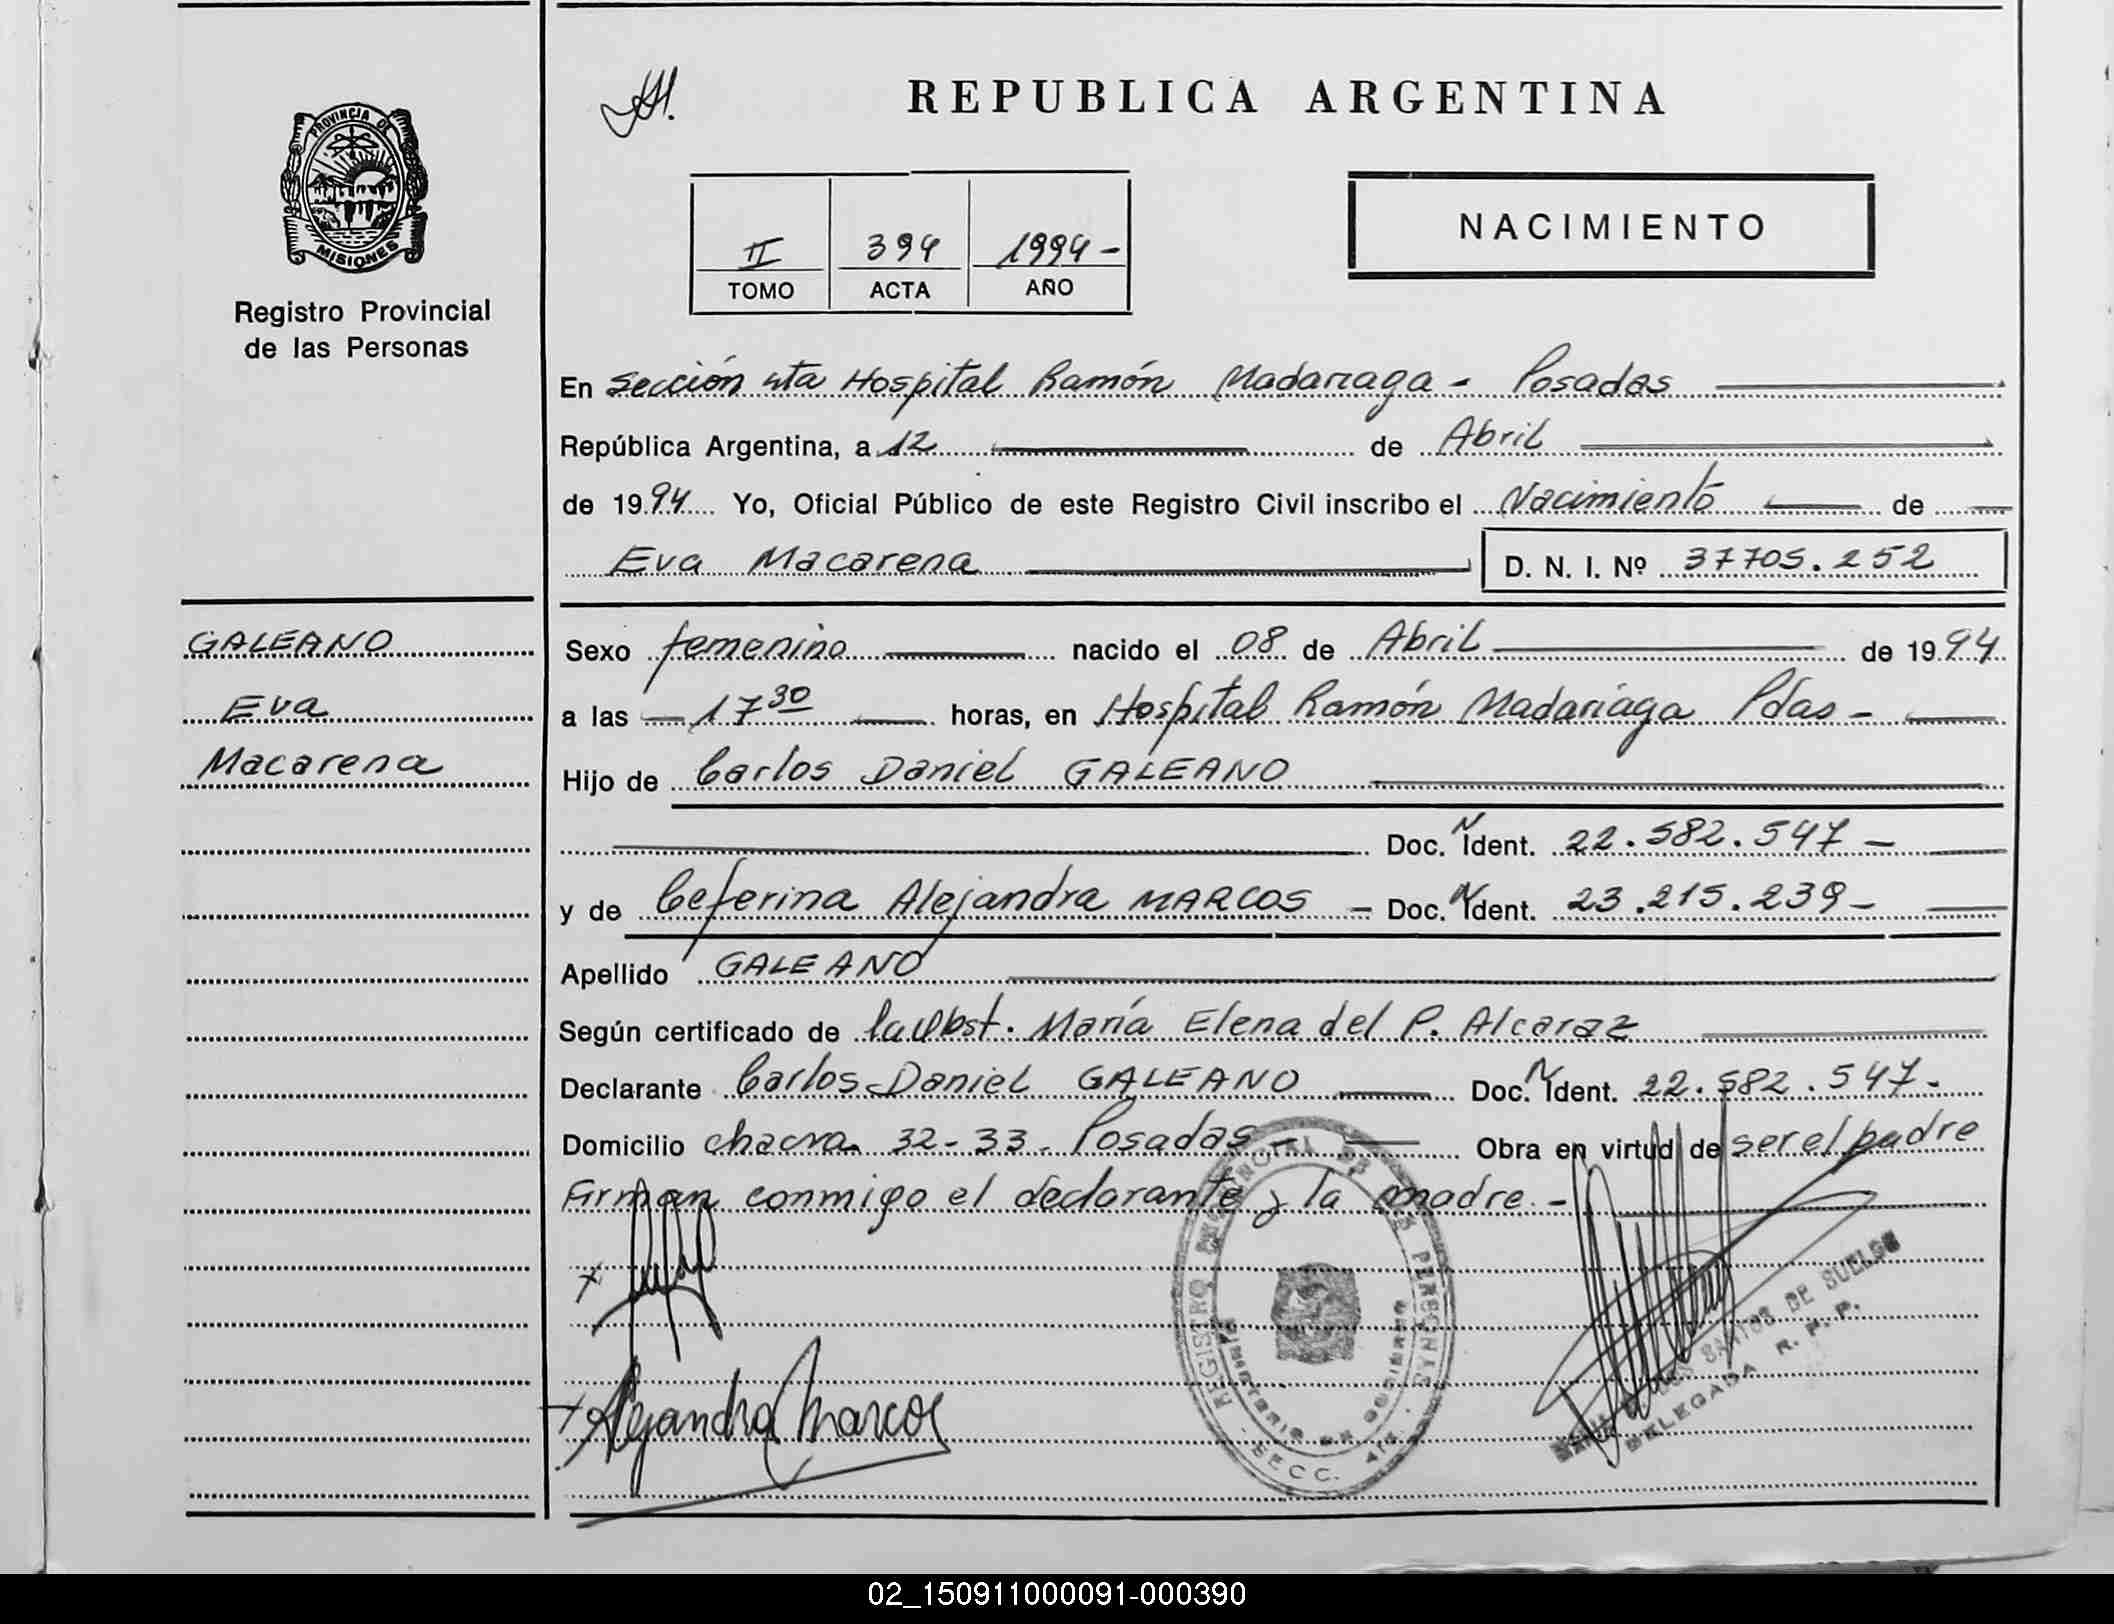 REPUBLICA ARGENTINA
PROVINCIA DE
MISIONES
Registro Provincial
de las Personas
II 394 1994-
TOMO ACTA AÑO
NACIMIENTO
En Sección 4ta Hospital Ramón Madariaga - Posadas
República Argentina, a 12 de Abril
de 1994 Yo, Oficial Público de este Registro Civil inscribo el Nacimiento de
Eva Macarena D. N. I. Nº 37705.252
GALEANO
Eva
Macarena
Sexo femenino nacido el 08 de Abril de 1994
a las 17 30 horas, en Hospital Ramón Madariaga Pdas -
Hijo de Carlos Daniel GALEANO
Doc. N Ident. 22.582.547 -
y de Ceferina Alejandra MARCOS - Doc. N Ident. 23.215.239 -
Apellido GALEANO
Según certificado de la Obst. María Elena del P. Alcaraz
Declarante Carlos Daniel GALEANO Doc. N Ident. 22.582.547-
Domicilio chacra 32-33. Posadas - Obra en virtud de ser el padre
Firman conmigo el declarante y la madre. -
Alejandra Marcos
REGISTRO PROVINCIAL DE LAS PERSONAS
MINISTERIO DE GOBIERNO
SECC. 4ta.
SANTOS DE SUELDO
DELEGADA R. P. P.
02_150911000091-000390